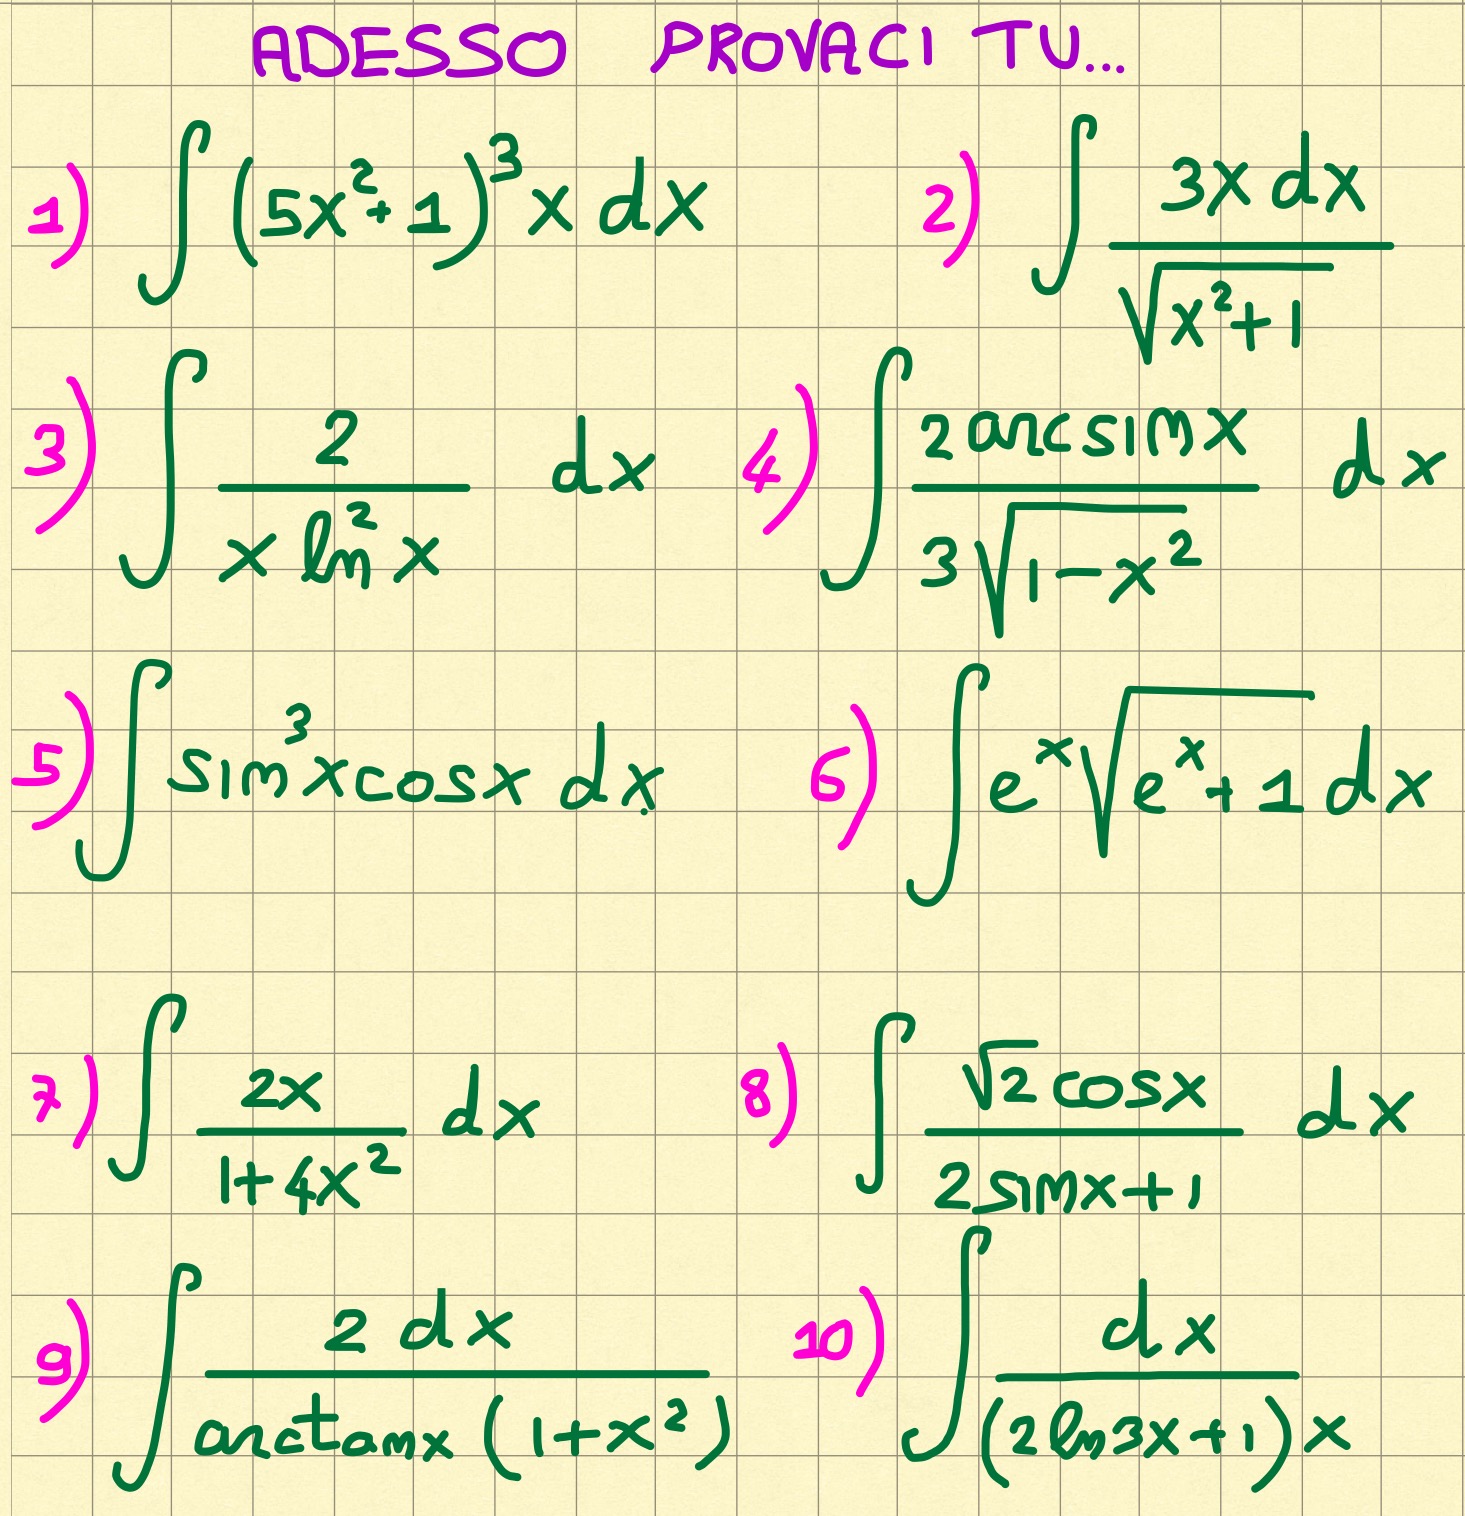 ADESSO PROVACI TU...
1) ∫(5x²+1)³ x dx
2) ∫ 3x dx / √(x²+1)
3) ∫ 2 / (x ln²x) dx
4) ∫ 2 arcsinx / (3√(1-x²)) dx
5) ∫ sin³x cosx dx
6) ∫ eˣ √(eˣ+1) dx
7) ∫ 2x / (1+4x²) dx
8) ∫ √2 cosx / (2sinx+1) dx
9) ∫ 2 dx / (arctanx (1+x²))
10) ∫ dx / ((2ln3x+1)x)